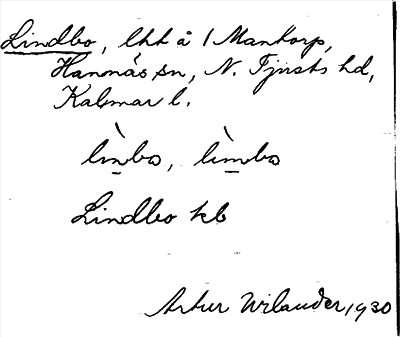 Lindbo, lht å 1 Mantorp,
Hannäs sn, N. Tjusts hd,
Kalmar l.
lìnbo, lìmbo
Lindbo kb
Artur Wilander, 1930